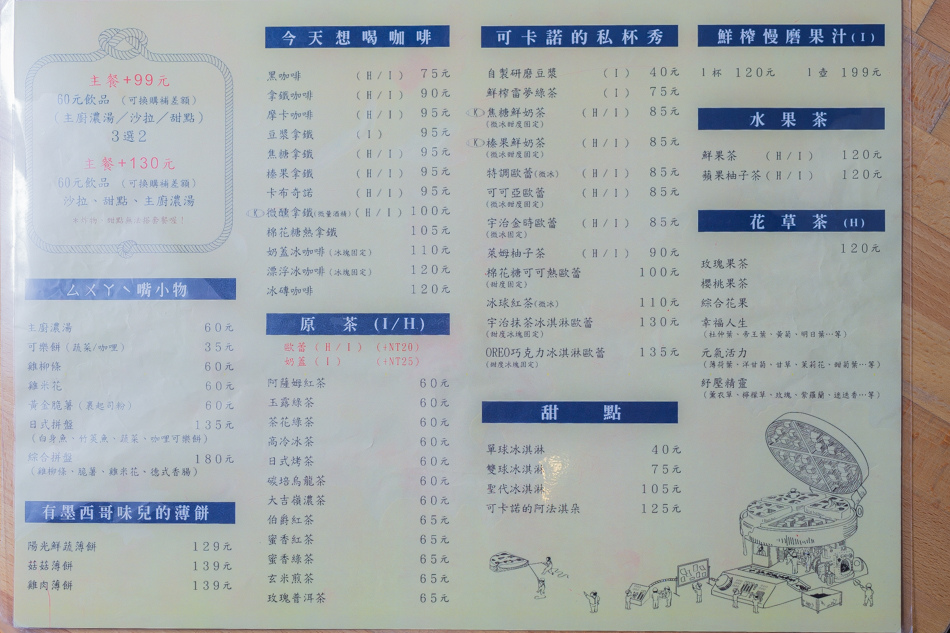 主餐+99元
60元飲品 (可換購補差額)
(主廚濃湯／沙拉／甜點)
3選2
主餐+130元
60元飲品 (可換購補差額)
沙拉、甜點、主廚濃湯
ㄙㄨㄚˋ嘴小物
主廚濃湯 60元
可樂餅(蔬菜/咖哩) 35元
雞柳條 60元
雞米花 60元
黃金脆薯(裹起司粉) 60元
日式拼盤 135元
(白身魚、竹筴魚、蔬菜、咖哩可樂餅)
綜合拼盤 180元
(雞柳條、脆薯、雞米花、德式香腸)
有墨西哥味兒的薄餅
陽光鮮蔬薄餅 129元
菇菇薄餅 139元
雞肉薄餅 139元
今天想喝咖啡
黑咖啡 (H/I) 75元
拿鐵咖啡 (H/I) 90元
摩卡咖啡 (H/I) 95元
豆漿拿鐵 (I) 95元
焦糖拿鐵 (H/I) 95元
榛果拿鐵 (H/I) 95元
卡布奇諾 (H/I) 95元
微醺拿鐵(微量酒精)(H/I) 100元
棉花糖熱拿鐵 105元
奶蓋冰咖啡(冰塊固定) 110元
漂浮冰咖啡(冰塊固定) 120元
冰磚咖啡 120元
原 茶 (I/H)
歐蕾(H/I) (+NT20)
奶蓋(I) (+NT25)
阿薩姆紅茶 60元
玉露綠茶 60元
茶花綠茶 60元
高冷冰茶 60元
日式烤茶 60元
碳培烏龍茶 60元
大吉嶺濃茶 60元
伯爵紅茶 65元
蜜香紅茶 65元
蜜香綠茶 65元
玄米煎茶 65元
玫瑰普洱茶 65元
可卡諾的私杯秀
自製研磨豆漿 (I) 40元
鮮榨雷夢綠茶 (I) 75元
焦糖鮮奶茶 (H/I) 85元
(微冰甜度固定)
榛果鮮奶茶 (H/I) 85元
(微冰甜度固定)
特調歐蕾(微冰) (H/I) 85元
可可亞歐蕾 (H/I) 85元
(微冰甜度固定)
宇治金時歐蕾 (H/I) 85元
(微冰固定)
萊姆柚子茶 (H/I) 90元
棉花糖可可熱歐蕾 100元
(甜度固定)
冰球紅茶(微冰) 110元
宇治抹茶冰淇淋歐蕾 130元
(甜度冰塊固定)
OREO巧克力冰淇淋歐蕾 135元
(甜度冰塊固定)
甜 點
單球冰淇淋 40元
雙球冰淇淋 75元
聖代冰淇淋 105元
可卡諾的阿法淇朵 125元
鮮榨慢磨果汁(I)
1杯 120元 1壺 199元
水果茶
鮮果茶 (H/I) 120元
蘋果柚子茶(H/I) 120元
花草茶(H)
120元
玫瑰果茶
櫻桃果茶
綜合花果
幸福人生
(杜仲葉、帝王葉、黃菊、明日葉…等)
元氣活力
(薄荷葉、洋甘菊、甘草、茉莉花、甜菊葉…等)
紓壓精靈
(薰衣草、檸檬草、玫瑰、紫羅蘭、迷迭香…等)